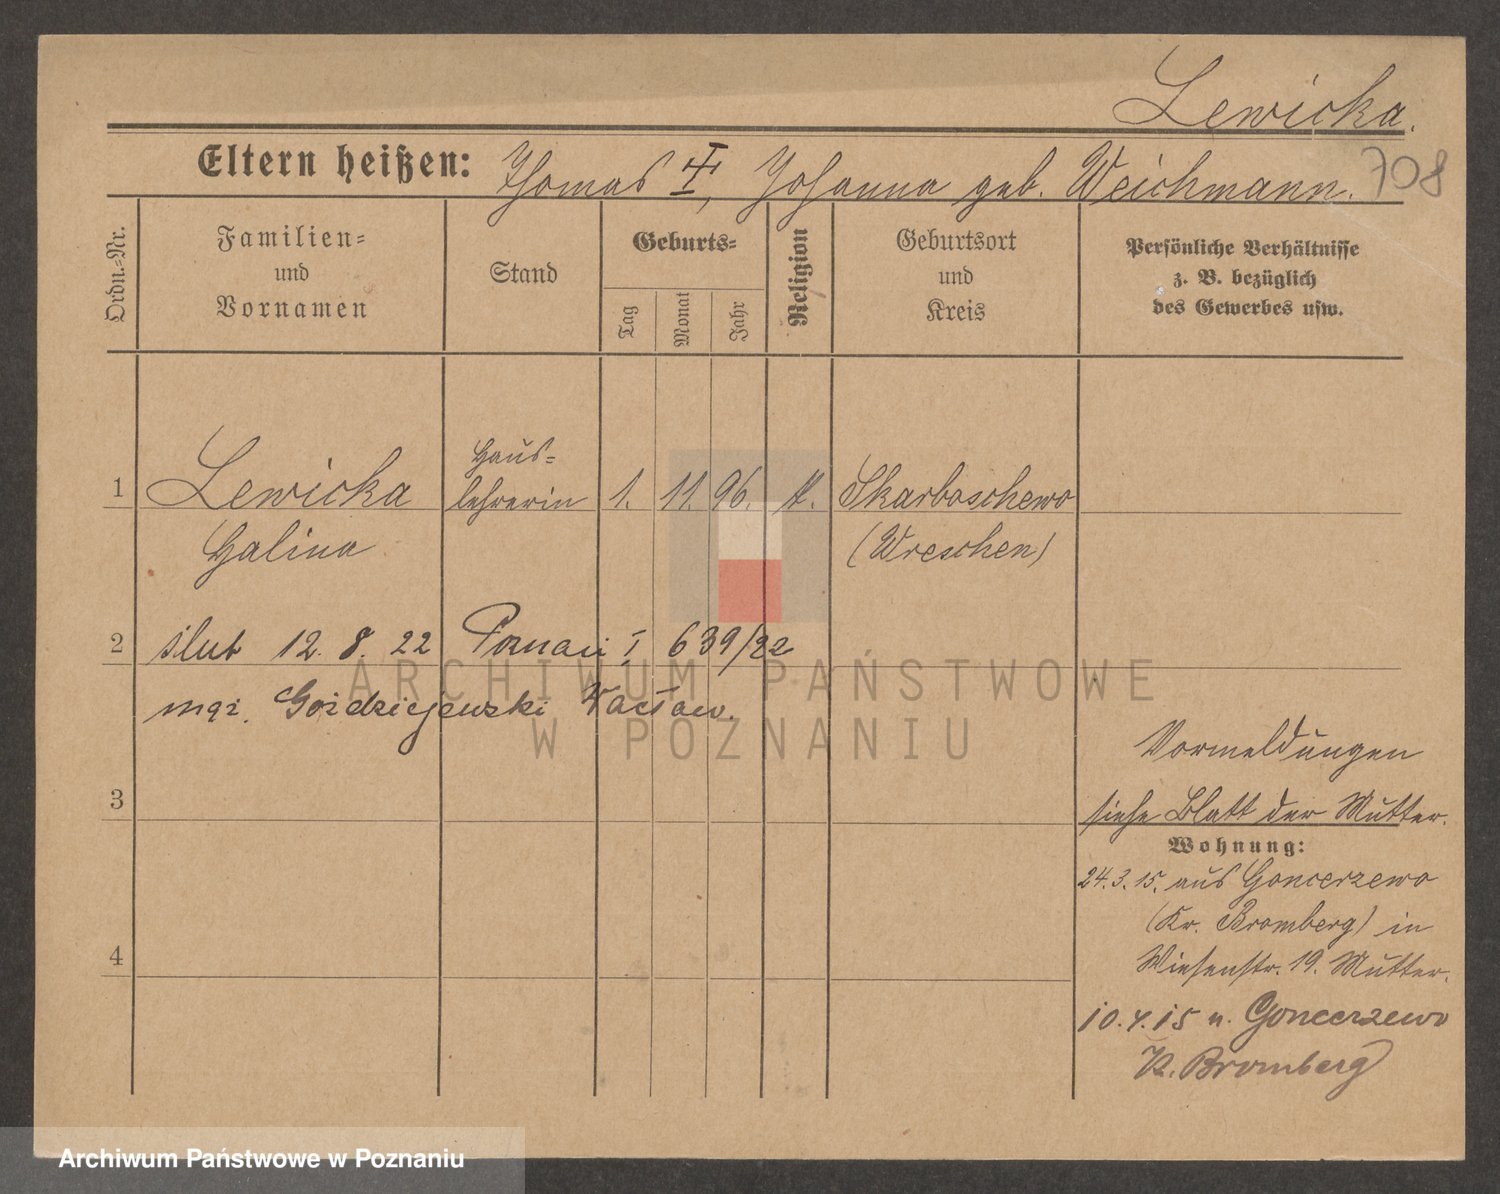 Lewicka.
Eltern heißen: Thomas ‡, Johanna geb. Weichmann. 708
Ordn.-Nr.
Familien-
und
Vornamen
Stand
Geburts-
Tag
Monat
Jahr
Religion
Geburtsort
und
Kreis
Persönliche Verhältnisse
z. B. bezüglich
des Gewerbes usw.
Haus-
1 Lewicka lehrerin 1. 11. 96. k. Skarboschewo
Halina (Wreschen)
2 ślub 12. 8. 22 Poznań I 639/22
mgr. Goździejewski Wacław.
ARCHIWUM PAŃSTWOWE
W POZNANIU
3
4
Vormeldungen
siehe Blatt der Mutter.
Wohnung:
24.3.15. aus Goncerzewo
(Kr. Bromberg) in
Wiesenstr. 19. Mutter.
10.4.15 n. Goncerzewo
K. Bromberg
Archiwum Państwowe w Poznaniu